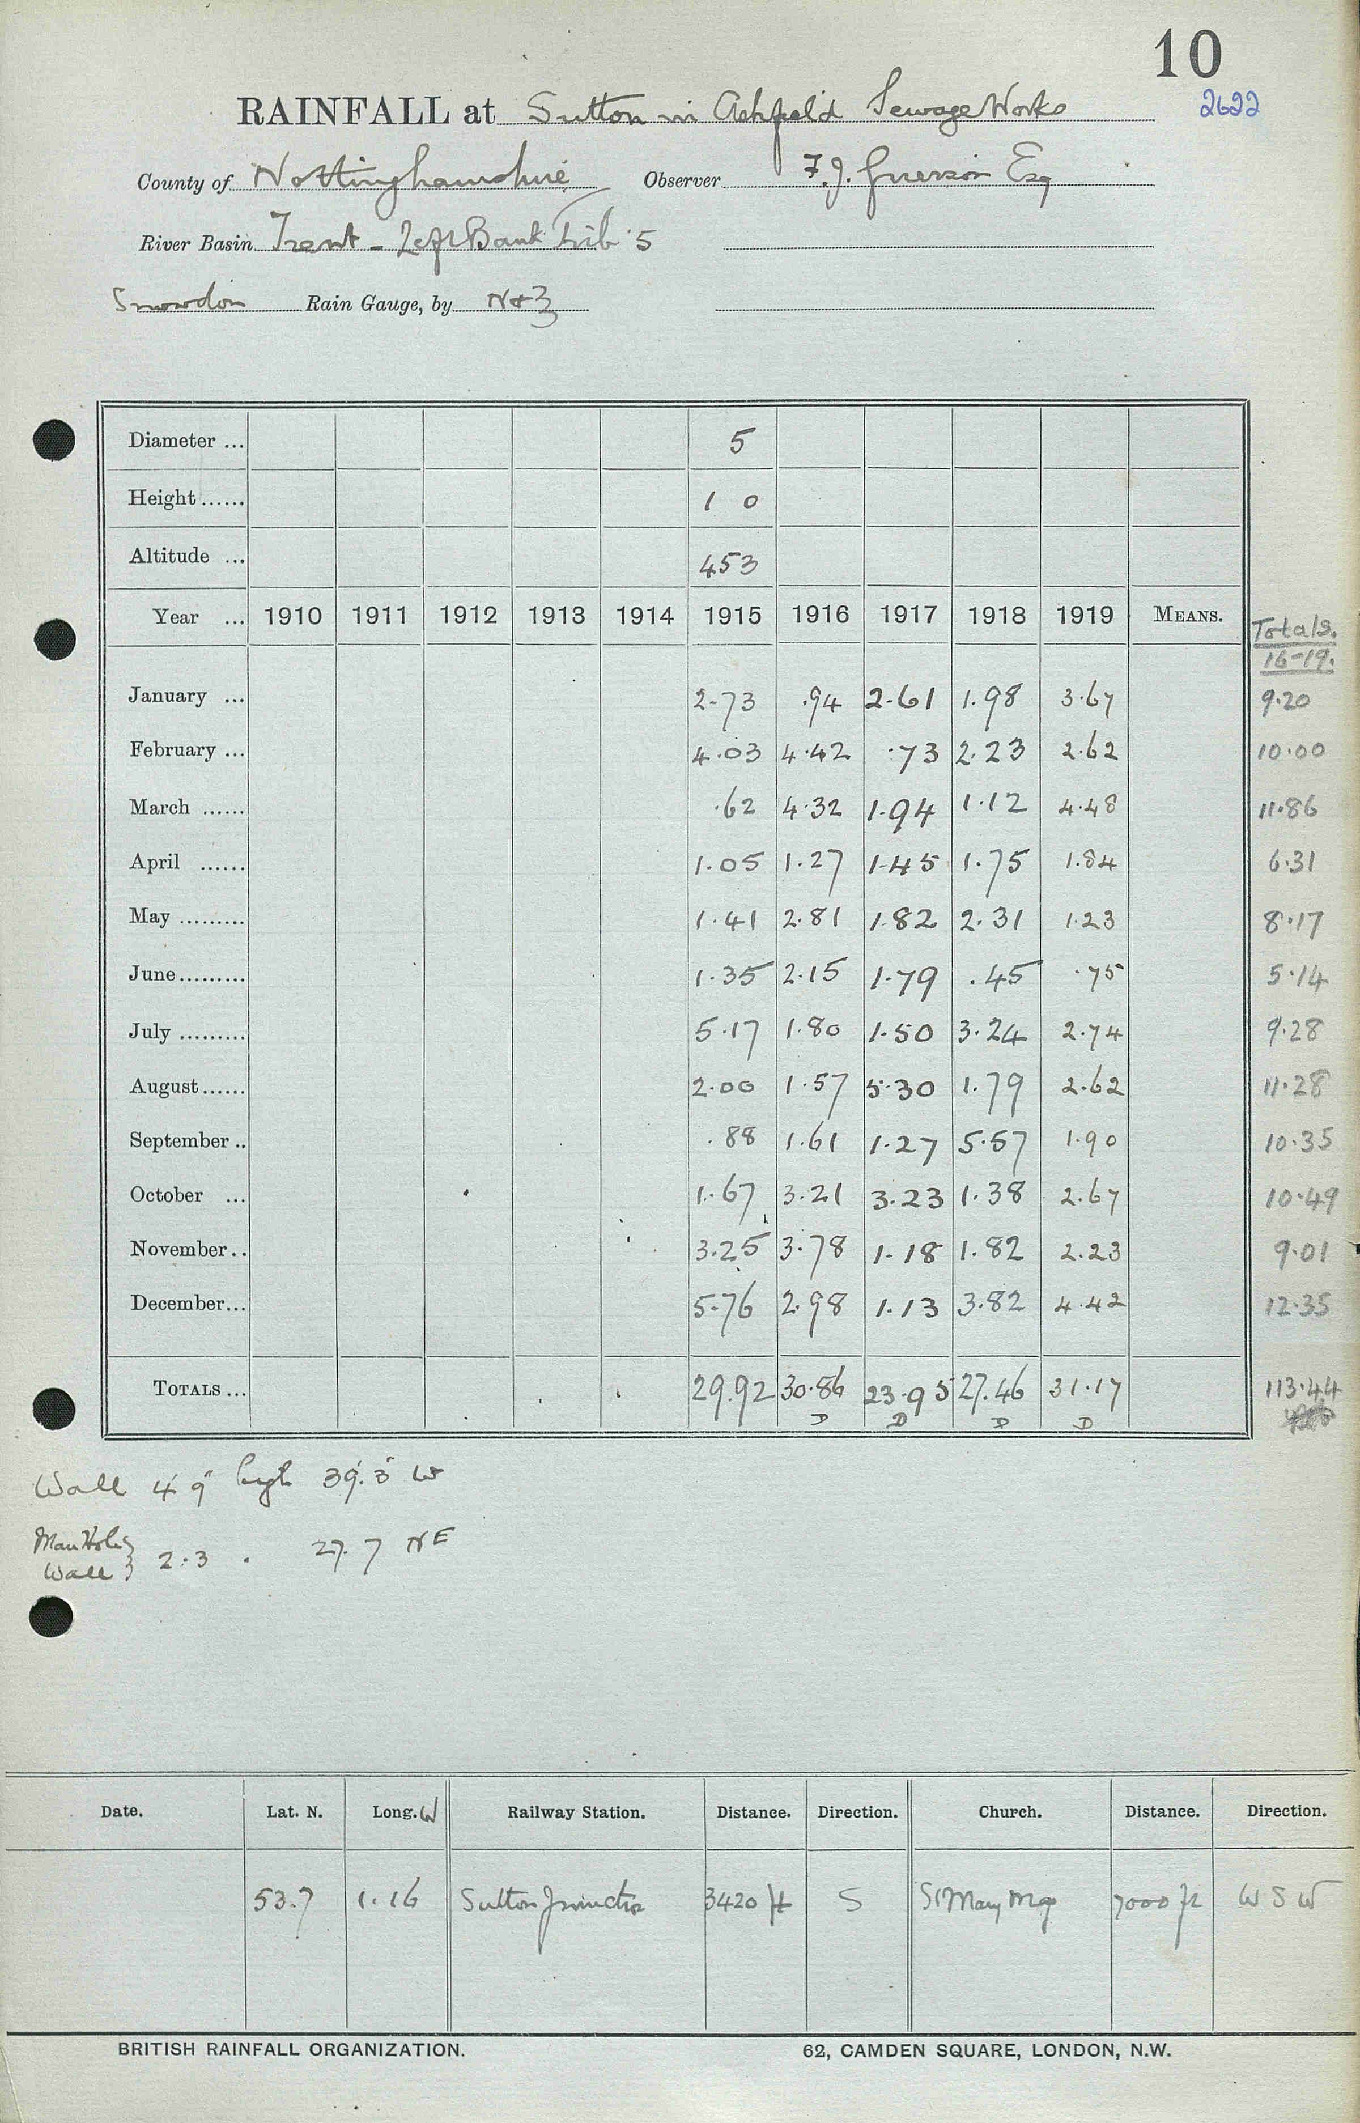 10
2622
RAINFALL at Sutton in Ashfield Sewage Works
County of Nottinghamshire Observer F.J. Grierson Esq
River Basin Trent - Left Bank Trib 5
Snowdon Rain Gauge, by N & Z
Diameter ... 5
Height ...... 1 0
Altitude ... 453
Year ... 1910 1911 1912 1913 1914 1915 1916 1917 1918 1919 MEANS. Totals. 16-19.
January ... 2.73 .94 2.61 1.98 3.67 9.20
February ... 4.03 4.42 .73 2.23 2.62 10.00
March ...... .62 4.32 1.94 1.12 4.48 11.86
April ...... 1.05 1.27 1.45 1.75 1.84 6.31
May ......... 1.41 2.81 1.82 2.31 1.23 8.17
June ......... 1.35 2.15 1.79 .45 .75 5.14
July ......... 5.17 1.80 1.50 3.24 2.74 9.28
August ...... 2.00 1.57 5.30 1.79 2.62 11.28
September .. .88 1.61 1.27 5.57 1.90 10.35
October ... 1.67 3.21 3.23 1.38 2.67 10.49
November .. 3.25 3.78 1.18 1.82 2.23 9.01
December ... 5.76 2.98 1.13 3.82 4.42 12.35
TOTALS ... 29.92 30.86 23.95 27.46 31.17 113.44
D D D D
Wall 4' 9" high 39' 3" W
Man Hole
Wall } 2.3 . 27.7 NE
Date. Lat. N. Long. W Railway Station. Distance. Direction. Church. Distance. Direction.
53.7 1.16 Sutton Junction 3420 ft S St Mary Mag 7000 ft W S W
BRITISH RAINFALL ORGANIZATION. 62, CAMDEN SQUARE, LONDON, N.W.